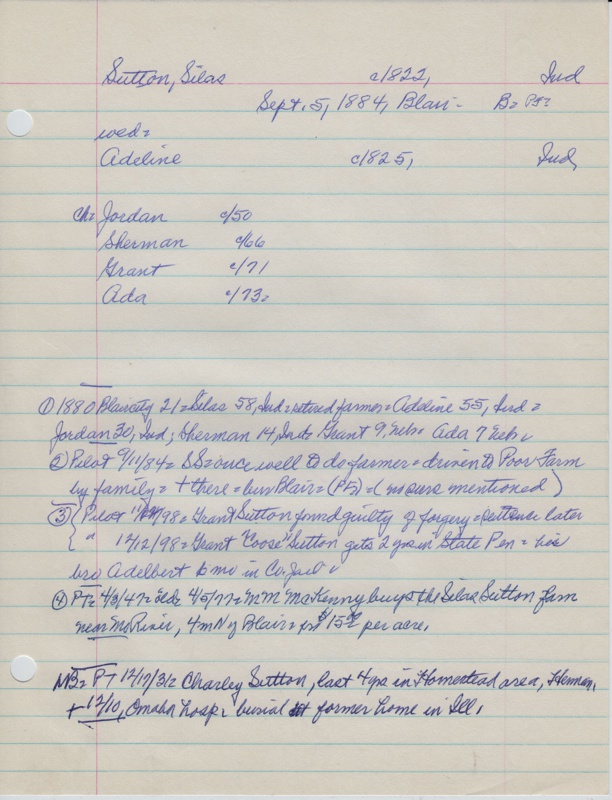 Sutton, Silas c/1822, Ind
Sept. 5, 1884, Blair - B=
wed=
Adeline c/1825, Ind,
ch= Jordan c/50
Sherman c/66
Grant c/71
Ada c/73=
① 1880 Blaircity 21= Silas 58, Ind= retired farmer= Adeline 55, Ind=
Jordan 30, Ind; Sherman 14, Ind= Grant 9, Neb= Ada 7 Neb.
② Pilot 9/11/84= SS= once well to do farmer= driven to Poor Farm
by family= + there= bur Blair= (no cure mentioned)
③ Pilot 98= Grant Sutton found guilty of forgery= sentence later
" 12/98= Grant "Coose" Sutton gets 2 yrs in State Pen= his
bro Adelbert 6 mo in Co. Jail.
④ PT= 4/3/47= McKenny buys the Silas Sutton farm
near Mo River, 4 m N of Blair= per acre.
NB= PT 12/17/31= Charley Sutton, last 4 yrs in Homestead area, Herman,
+ 12/10, Omaha hosp= burial at former home in Ill.